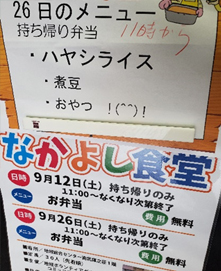 26日のメニュー
持ち帰り弁当
11時から
・ハヤシライス
・煮豆
・おやつ !(^^)!
なかよし食堂
日時 9月12日(土) 持ち帰りのみ
11:00~なくなり次第終了
メニュー お弁当 費用 無料
日時 9月26日(土) 持ち帰りのみ
11:00~なくなり次第終了
メニュー お弁当 費用 無料